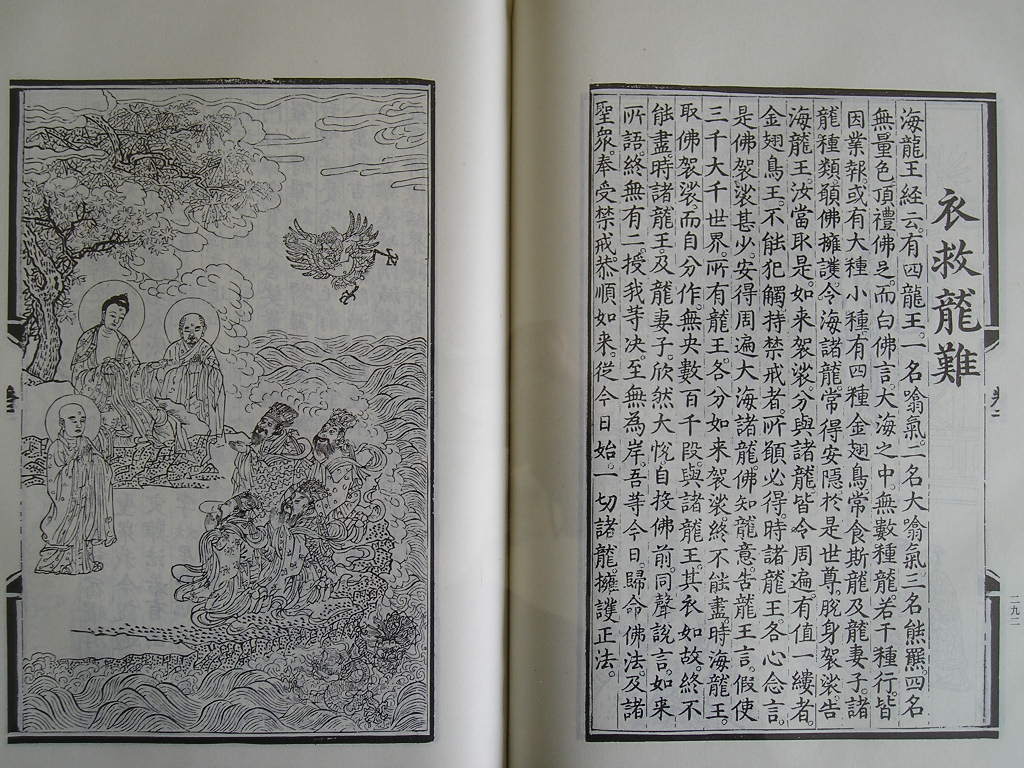 衣救龍難
海龍王經云。有四龍王。一名噏氣。二名大噏氣三名熊羆。四名
無量色頂禮佛足。而白佛言大海之中無數種龍若干種行皆
因業報或有大種小種有四種金翅鳥常食斯龍及龍妻子。諸
龍種類願佛擁護令海諸龍常得安隱於是世尊。脫身袈裟告
海龍王汝當取是。如來袈裟分與諸龍皆令周遍有值一縷者。
金翅鳥王。不能犯觸持禁戒者。所願必得。時諸龍王。各心念言。
是佛袈裟甚少。安得周遍大海諸龍佛知龍意告龍王言。假使
三千大千世界。所有龍王。各分如來袈裟終不能盡。時海龍王。
取佛袈裟而自分作無央數百千段與諸龍王。其衣如故終不
能盡時諸龍王及龍妻子。欣然大悅自投佛前。同聲說言。如來
所語終無有二授我等決至無為岸。吾等今日。歸命佛法及諸
聖眾奉受禁戒恭順如來。從今日始。一切諸龍擁護正法。
卷二
二九二